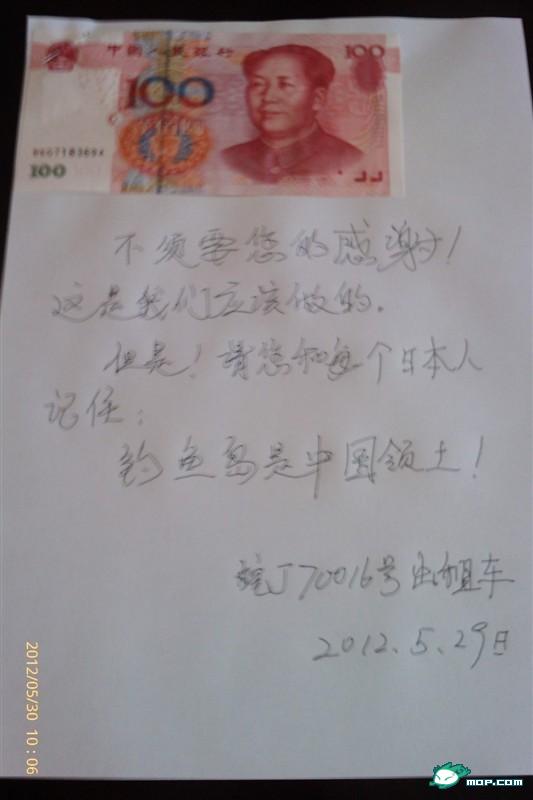 中国人民银行
100
100
100
不须要您的感谢！
这是我们应该做的.
但是！请您和每个日本人
记住：
钓鱼岛是中国领土！
皖J70016号出租车
2012.5.29日
2012/05/30 10:06
mop.com